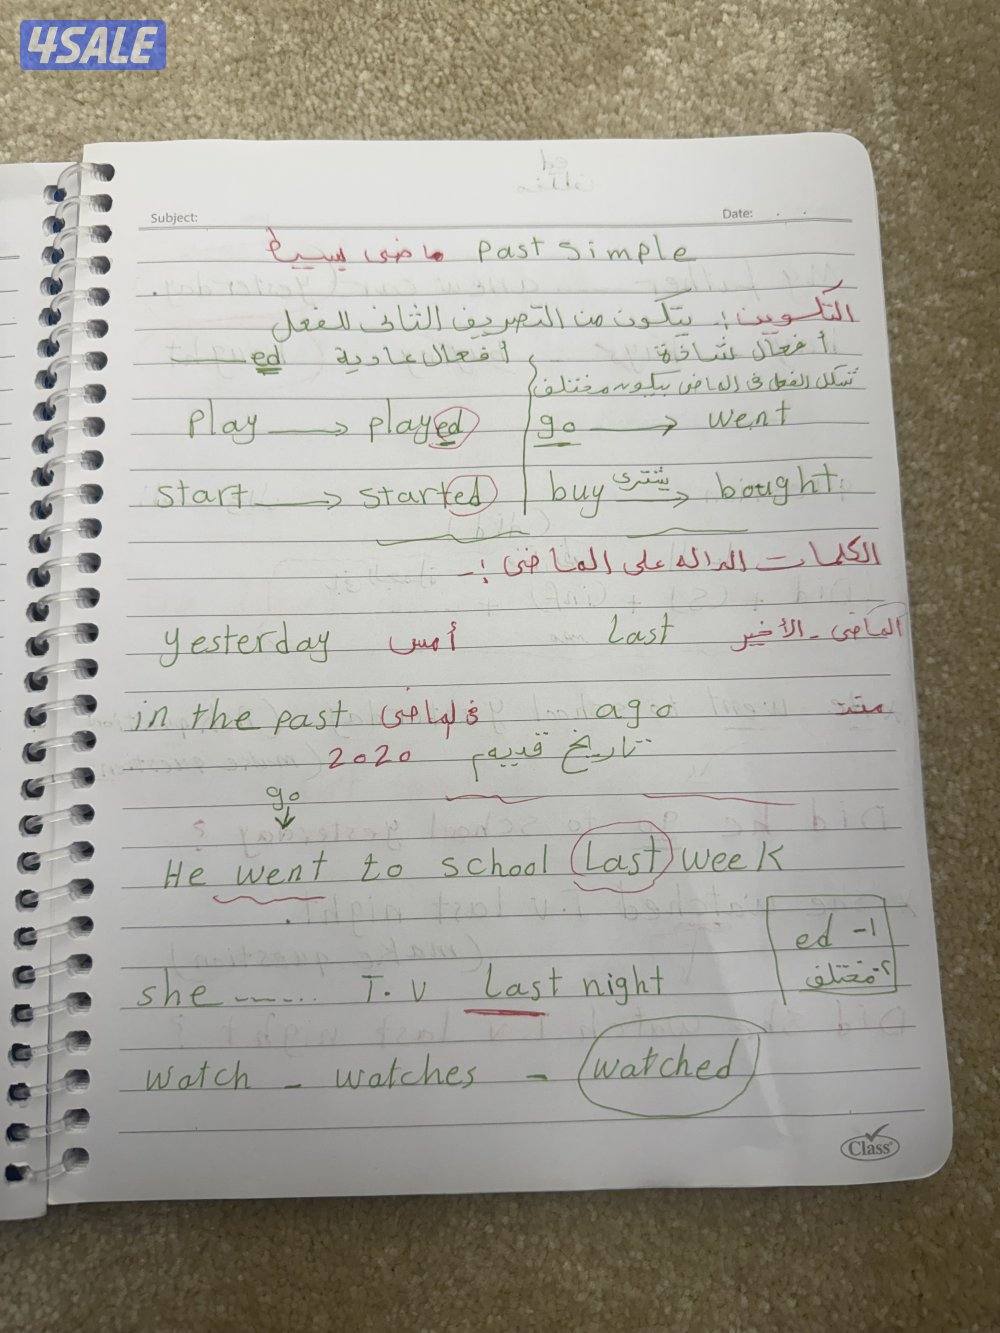 4SALE
Subject: Date:
Past Simple ماضى بسيط
التكوين : يتكون من التصريف الثانى للفعل
أفعال شاذة أفعال عادية ed
شكل الفعل فى الماضى بيكون مختلف
play → played go → went
start → started buy يشترى → bought
الكلمات الداله على الماضى :-
yesterday أمس last الماضى - الأخير
in the past فى الماضى ago منذ
2020 تاريخ قديم
go
He went to school last week
ed -1
2- مختلف
she ........ T.V last night
watch - watches - watched
Class